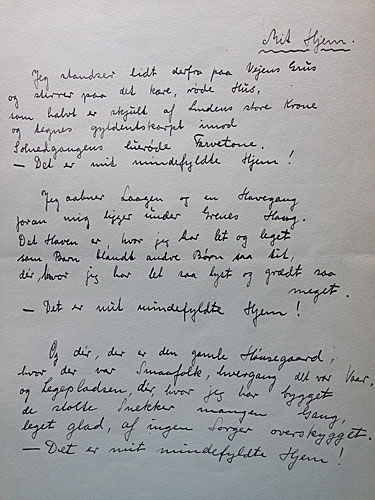 Mit Hjem.
Jeg standser lidt derfra paa Vejens Grus
og stirrer paa det kære, røde Hus,
som halvt er skjult af Lindens store Krone
og tegnes gyldentskarpt imod
Solnedgangens luerøde Farvetone.
— Det er mit mindefyldte Hjem!
Jeg aabner Laagen og en Havegang
foran mig ligger under Grenes Hang.
Det Haven er, hvor jeg har let og leget
som Barn blandt andre Børn saa tit,
dér, hvor jeg har let saa lyst og grædt saa
meget.
— Det er mit mindefyldte Hjem!
Og dér, der er den gamle Hønsegaard,
hvor der var Smaafolk, hvergang det var Vaar,
og Legepladsen, dér, hvor jeg har bygget
de stolte Snekker mangen Gang,
leget glad, af ingen Sorger overskygget.
— Det er mit mindefyldte Hjem!